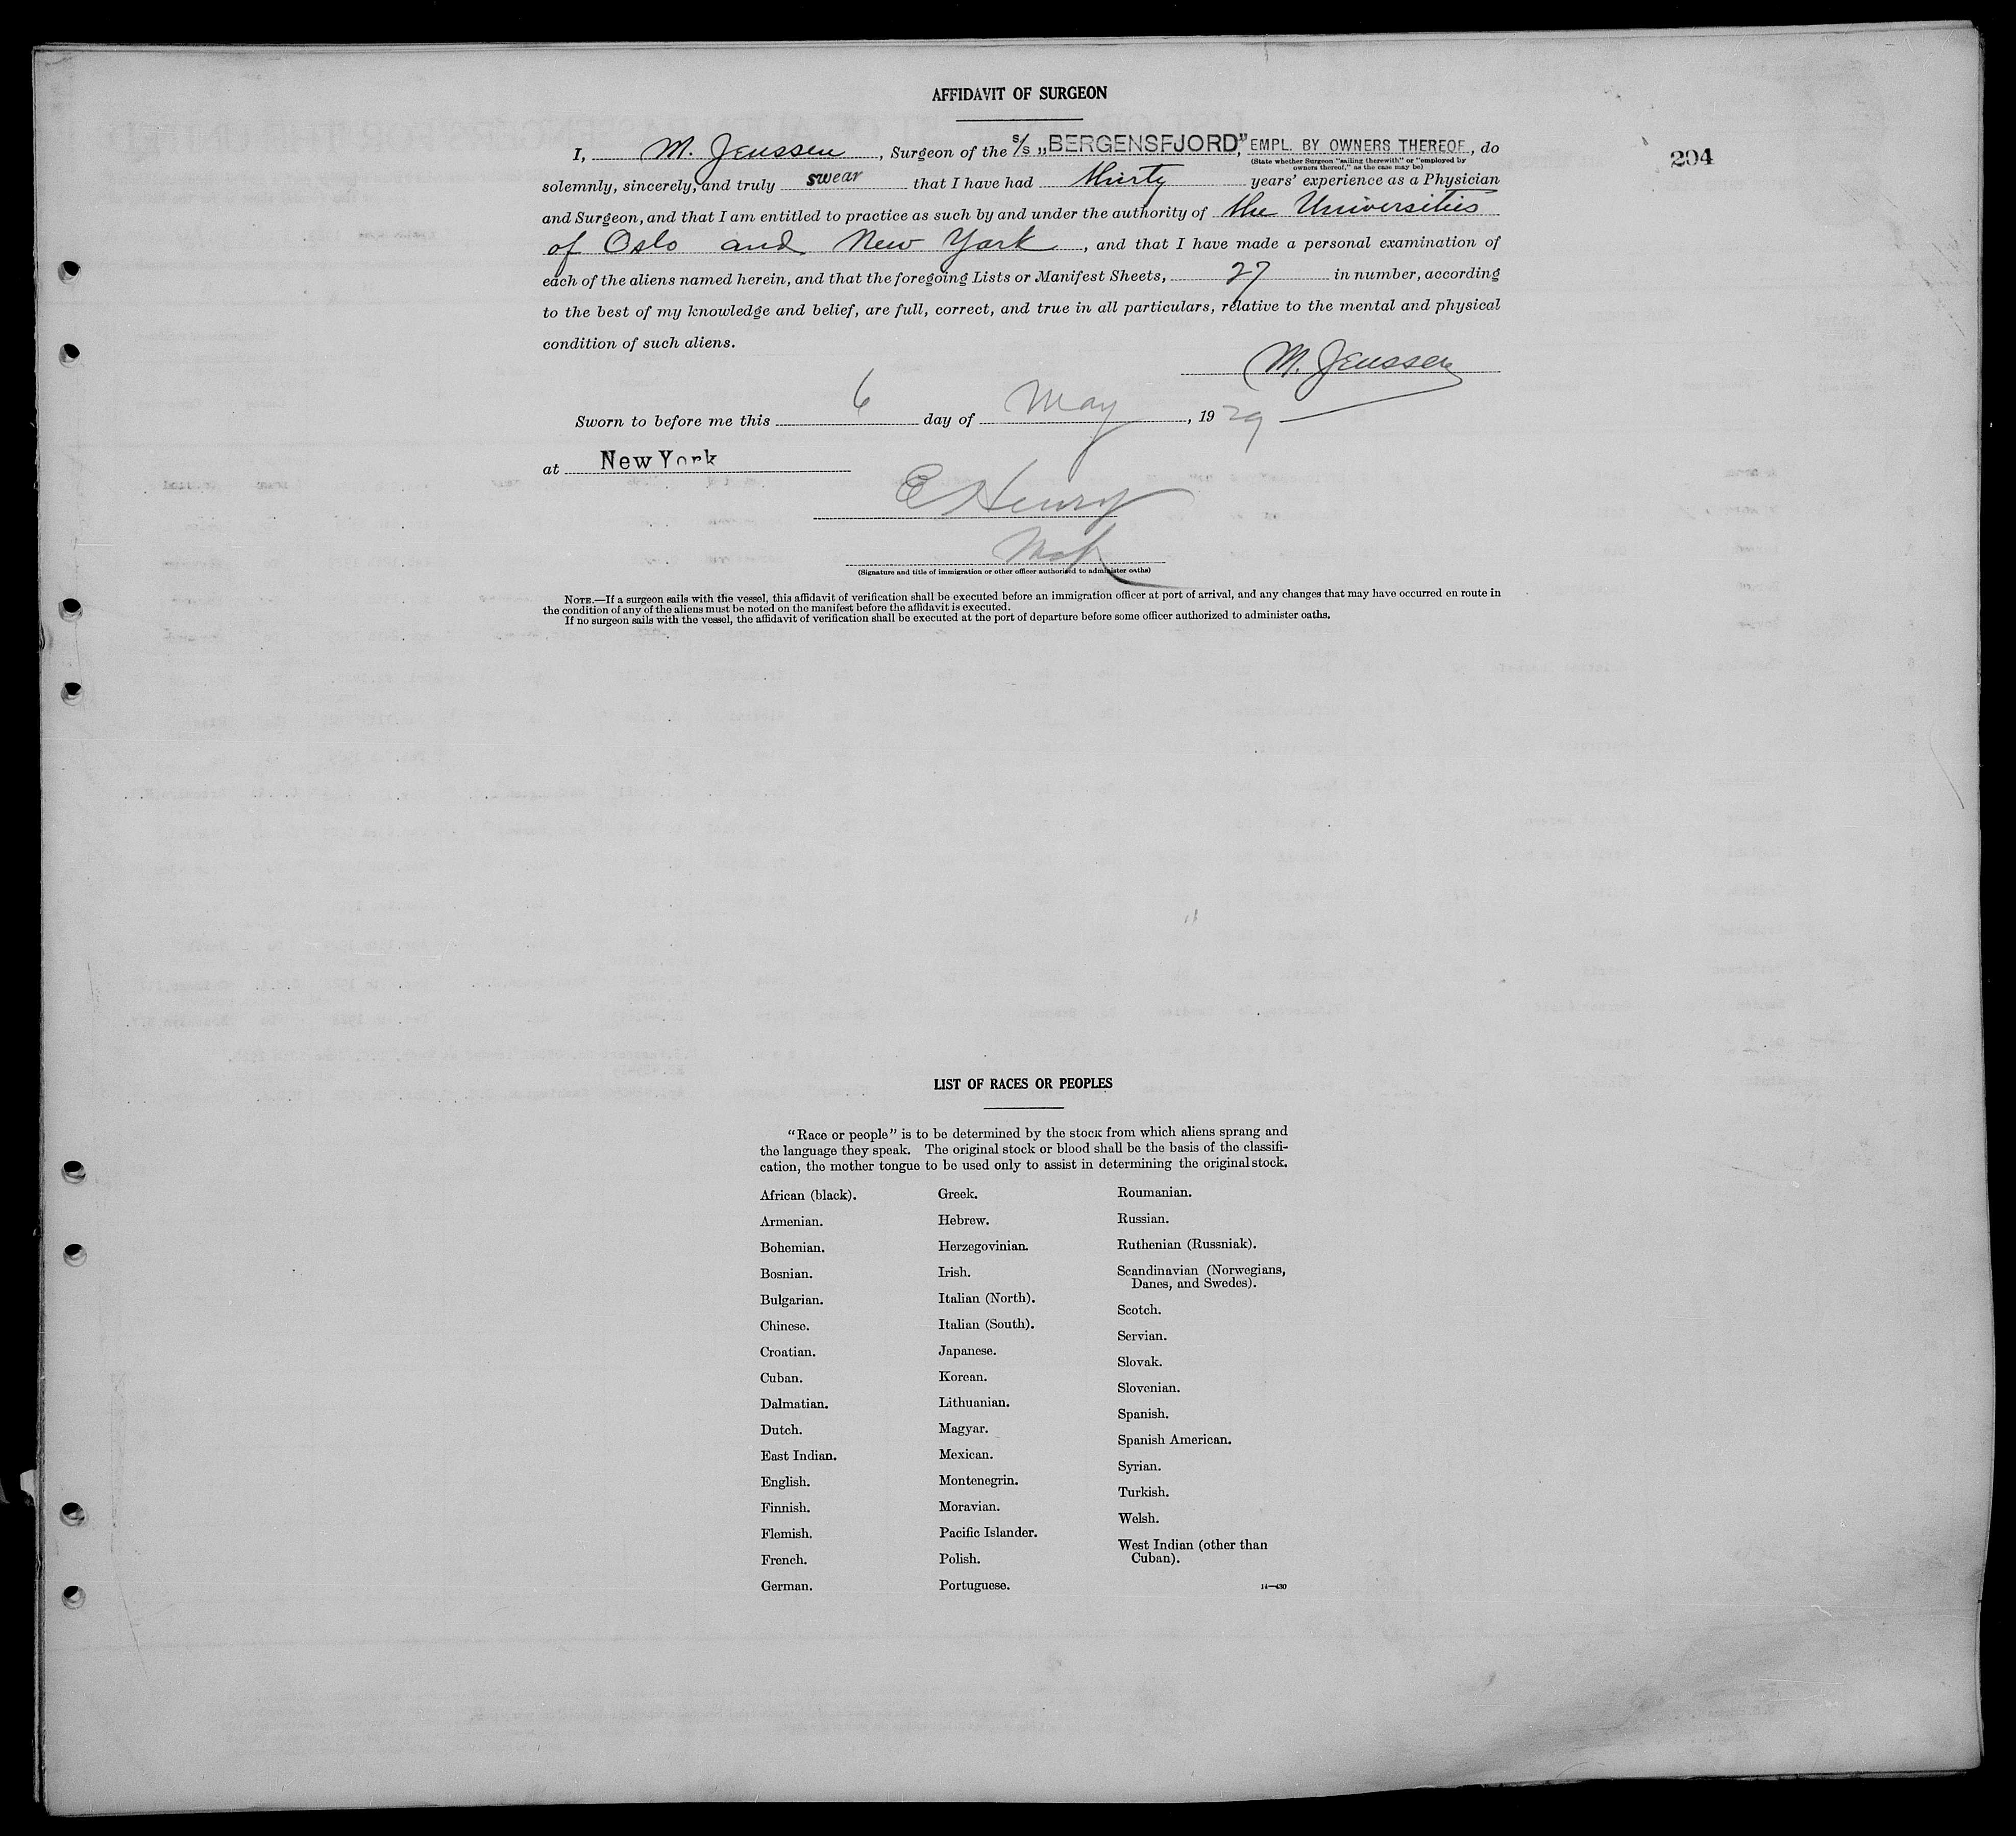 AFFIDAVIT OF SURGEON
204
I, M. Jenssen, Surgeon of the S/S „BERGENSFJORD,” EMPL. BY OWNERS THEREOF, do
(State whether Surgeon "sailing therewith" or "employed by
owners thereof," as the case may be)
solemnly, sincerely, and truly swear that I have had thirty years' experience as a Physician
and Surgeon, and that I am entitled to practice as such by and under the authority of the Universities
of Oslo and New York, and that I have made a personal examination of
each of the aliens named herein, and that the foregoing Lists or Manifest Sheets, 27 in number, according
to the best of my knowledge and belief, are full, correct, and true in all particulars, relative to the mental and physical
condition of such aliens.
M. Jenssen
Sworn to before me this 6 day of May, 1929
at New York
E Henry
(Signature and title of immigration or other officer authorized to administer oaths)
NOTE.—If a surgeon sails with the vessel, this affidavit of verification shall be executed before an immigration officer at port of arrival, and any changes that may have occurred en route in
the condition of any of the aliens must be noted on the manifest before the affidavit is executed.
If no surgeon sails with the vessel, the affidavit of verification shall be executed at the port of departure before some officer authorized to administer oaths.
LIST OF RACES OR PEOPLES
"Race or people" is to be determined by the stock from which aliens sprang and
the language they speak. The original stock or blood shall be the basis of the classifi-
cation, the mother tongue to be used only to assist in determining the original stock.
African (black).
Armenian.
Bohemian.
Bosnian.
Bulgarian.
Chinese.
Croatian.
Cuban.
Dalmatian.
Dutch.
East Indian.
English.
Finnish.
Flemish.
French.
German.
Greek.
Hebrew.
Herzegovinian.
Irish.
Italian (North).
Italian (South).
Japanese.
Korean.
Lithuanian.
Magyar.
Mexican.
Montenegrin.
Moravian.
Pacific Islander.
Polish.
Portuguese.
Roumanian.
Russian.
Ruthenian (Russniak).
Scandinavian (Norwegians,
Danes, and Swedes).
Scotch.
Servian.
Slovak.
Slovenian.
Spanish.
Spanish American.
Syrian.
Turkish.
Welsh.
West Indian (other than
Cuban).
14—430